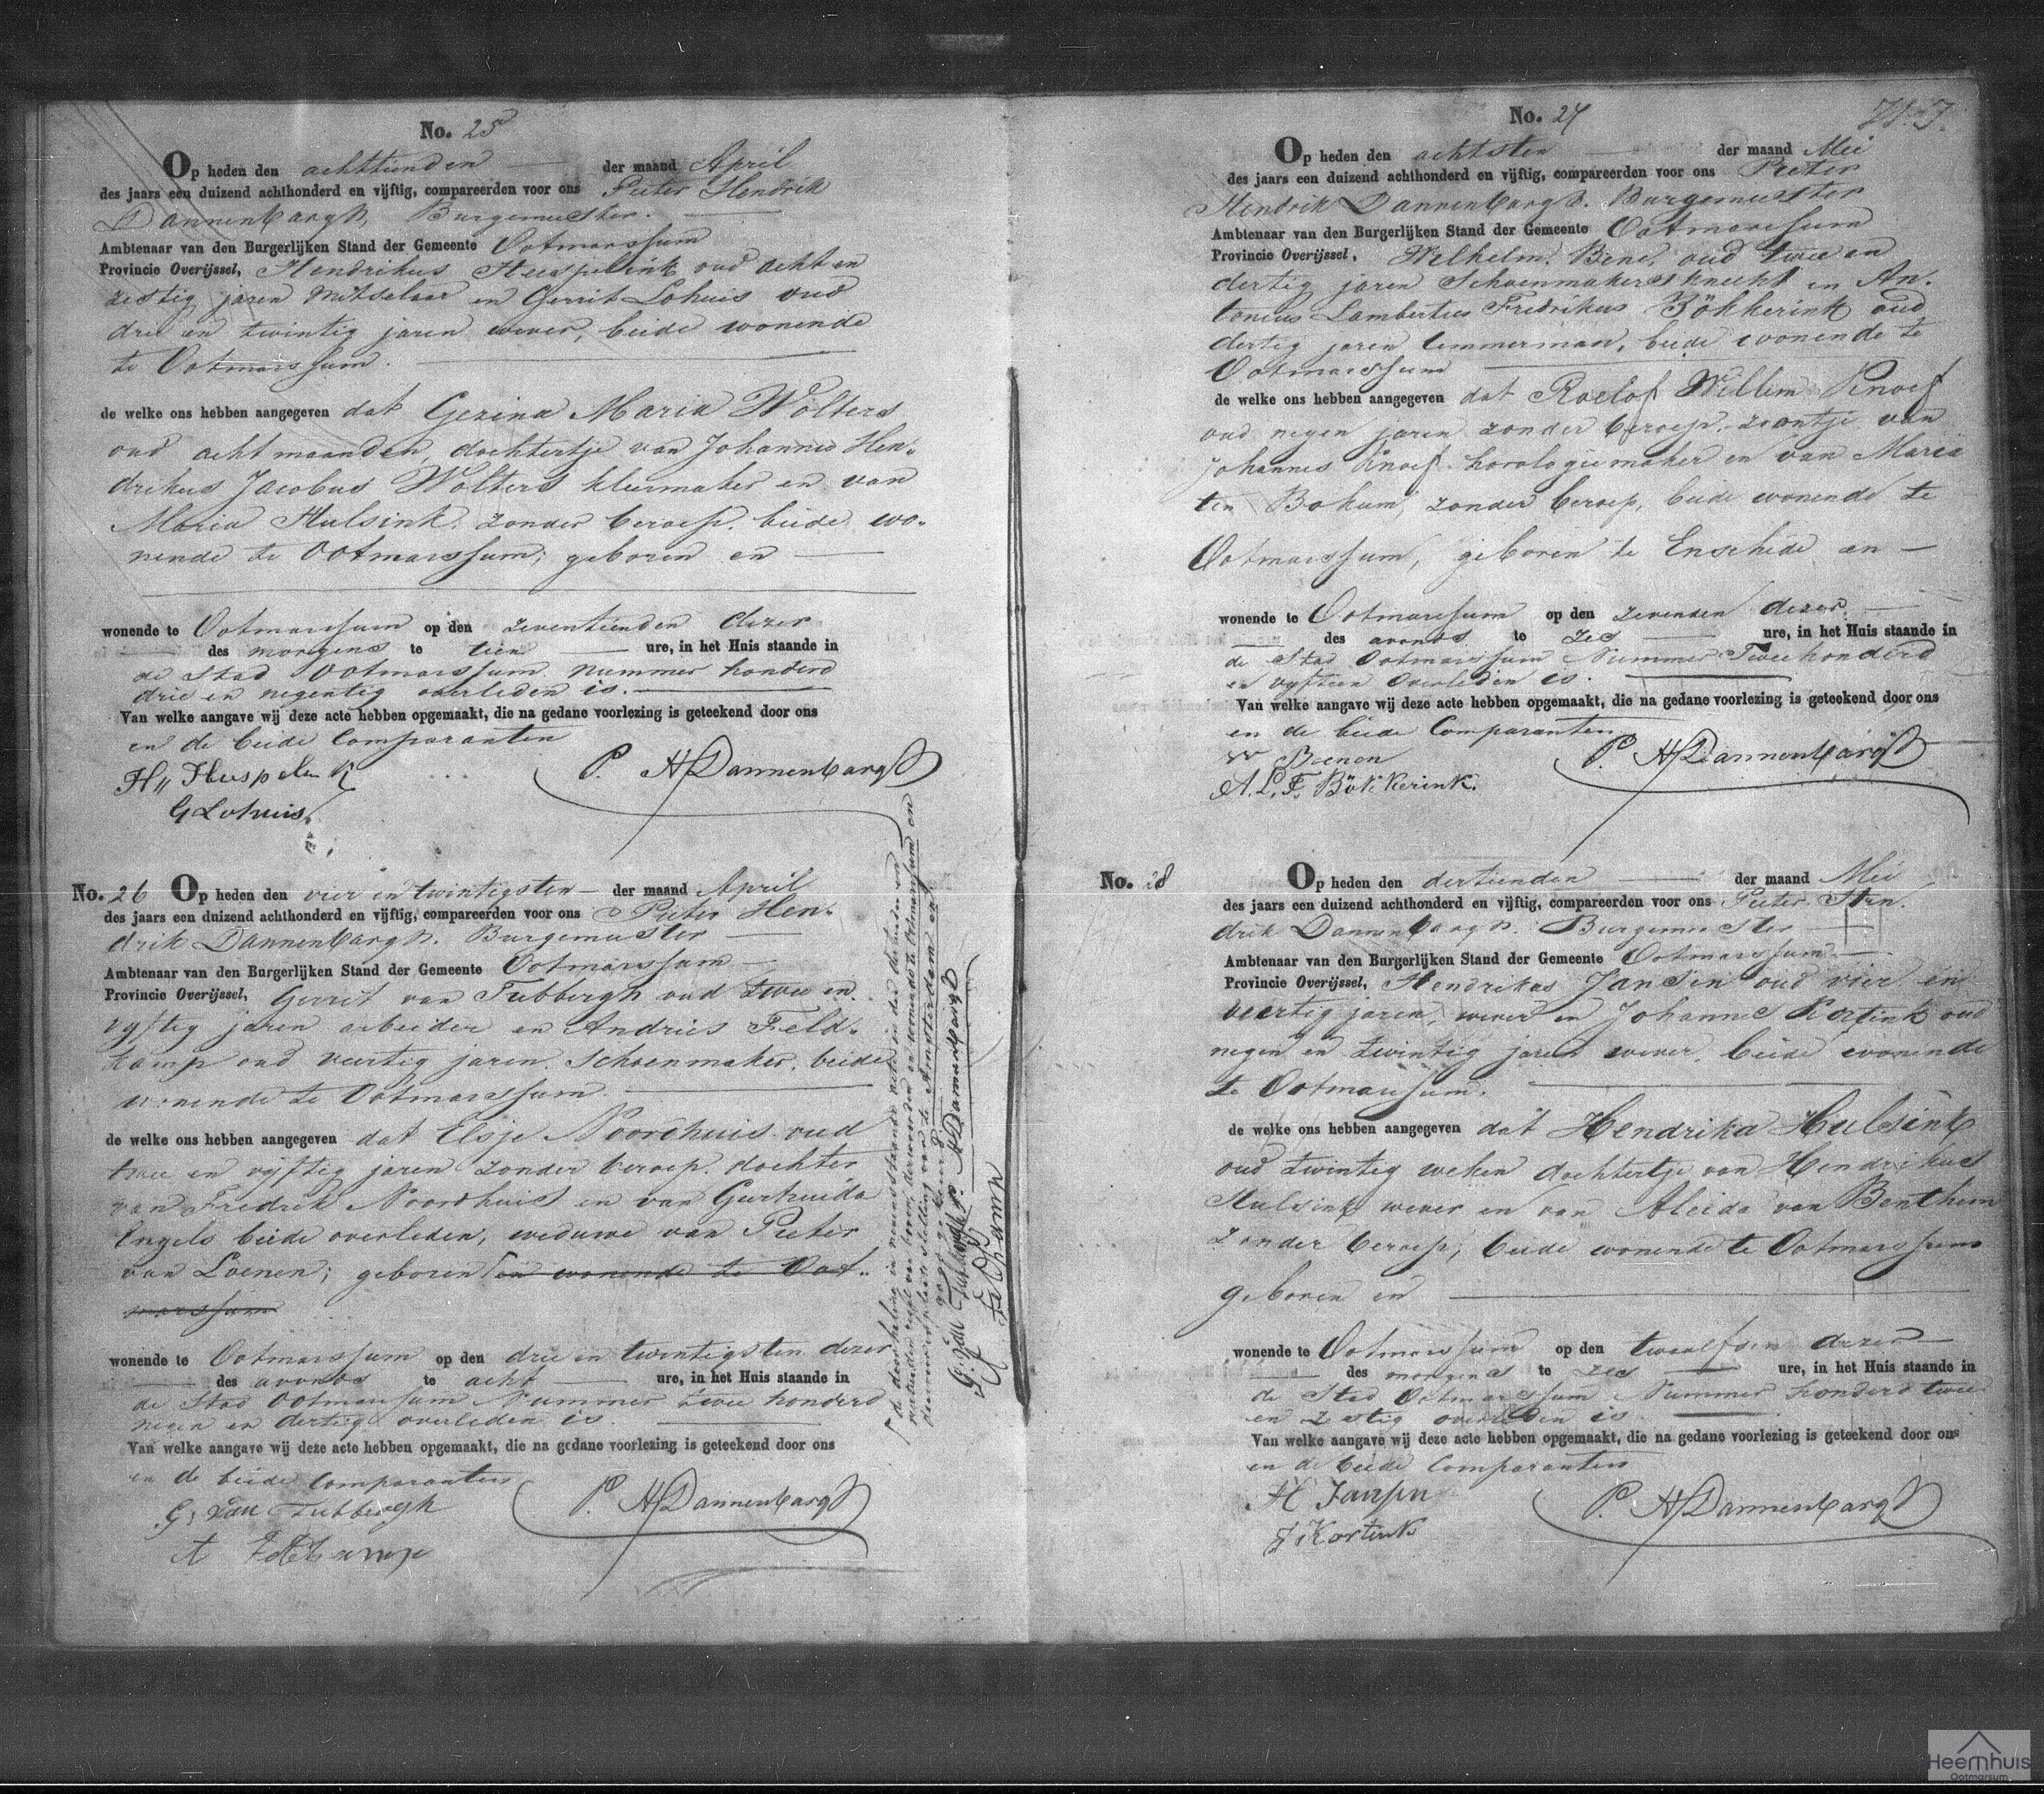 No. 25
Op heden den achttienden der maand April
des jaars een duizend achthonderd en vijftig, compareerden voor ons Pieter Hendrik
Dannenbargh, Burgemeester.
Ambtenaar van den Burgerlijken Stand der Gemeente Ootmarssum
Provincie Overijssel, Hendrikus Heuspelink oud acht en
zestig jaren metselaar en Gerrit Lohuis oud
drie en twintig jaren wever, beide wonende
te Ootmarssum.
de welke ons hebben aangegeven dat Gezina Maria Wolters
oud acht maanden, dochtertje van Johannes Hen-
drikus Jacobus Wolters kleermaker en van
Maria Hulsink, zonder beroep, beide wo-
nende te Ootmarssum; geboren en
wonende te Ootmarssum op den zeventienden dezer
des morgens te tien ure, in het Huis staande in
de Stad Ootmarssum nummer honderd
drie en negentig overleden is.
Van welke aangave wij deze acte hebben opgemaakt, die na gedane voorlezing is geteekend door ons
en de beide Comparanten
H. Heuspelink
P. H. Dannenbargh
G Lohuis
No. 26 Op heden den vier en twintigsten der maand April
des jaars een duizend achthonderd en vijftig, compareerden voor ons Pieter Hen-
drik Dannenbargh. Burgemeester
Ambtenaar van den Burgerlijken Stand der Gemeente Ootmarssum
Provincie Overijssel, Gerrit van Tubbergh oud twee en
vyftig jaren arbeider en Andries Feld-
kamp oud veertig jaren, Schoenmaker, beide
wonende te Ootmarssum.
de welke ons hebben aangegeven dat Elsje Noordhuis oud
twee en vyftig jaren zonder beroep, dochter
van Fredrik Noordhuis en van Geertruida
Engels beide overleden, weduwe van Pieter
van Loenen; geboren en wonende te Oot-
marssum
wonende te Ootmarssum op den drie en twintigsten dezer
des avonds te acht ure, in het Huis staande in
de Stad Ootmarssum Nummer twee honderd
negen en dertig overleden is.
Van welke aangave wij deze acte hebben opgemaakt, die na gedane voorlezing is geteekend door ons
en de beide Comparanten
G. van Tubbergh
P. H. Dannenbargh
A Feldkamp
de doorhaling in nevenstaande acte van
van de woorden en wonende te Ootmarssum en
plaatsstelling van te Amsterdam en
P. H. Dannenbargh
G. van Tubbergh
A Feldkamp
No. 27
Op heden den achtsten der maand Mei
des jaars een duizend achthonderd en vijftig, compareerden voor ons Pieter
Hendrik Dannenbargh. Burgemeester
Ambtenaar van den Burgerlijken Stand der Gemeente Ootmarssum
Provincie Overijssel, Wilhelm Bene, oud twee en
dertig jaren Schoenmakersknecht en An-
tonius Lambertus Fredrikus Bökkerink oud
dertig jaren timmerman, beide wonende te
Ootmarssum
de welke ons hebben aangegeven dat Roelof Willem Knoef
oud negen jaren zonder beroep, zoontje van
Johannes Knoef horologiemaker en van Maria
ten Bokum, zonder beroep, beide wonende te
Ootmarssum, geboren te Enschede en
wonende te Ootmarssum op den zevenden dezer
des avonds te zes ure, in het Huis staande in
de Stad Ootmarssum Nummer Twee honderd
en vyftien overleden is.
Van welke aangave wij deze acte hebben opgemaakt, die na gedane voorlezing is geteekend door ons
en de beide Comparanten
W Benen
P. H. Dannenbargh
A. L. F. Bökkerink.
No. 28 Op heden den dertienden der maand Mei
des jaars een duizend achthonderd en vijftig, compareerden voor ons Pieter Hen-
drik Dannenbargh. Burgemeester
Ambtenaar van den Burgerlijken Stand der Gemeente Ootmarssum
Provincie Overijssel, Hendrikus Jansen oud vier en
veertig jaren, wever en Johannes Kortink oud
negen en twintig jaren wever, beide wonende
te Ootmarssum.
de welke ons hebben aangegeven dat Hendrika Hulsink
oud twintig weken dochtertje van Hendrikus
Hulsink wever en van Aleida van Benthem
zonder beroep; beide wonende te Ootmarssum
geboren en
wonende te Ootmarssum op den twaalfden dezer
des morgens te zes ure, in het Huis staande in
de Stad Ootmarssum Nummer honderd twee
en zestig overleden is.
Van welke aangave wij deze acte hebben opgemaakt, die na gedane voorlezing is geteekend door ons
en de beide Comparanten
H Jansen
P. H. Dannenbargh
J. Kortink
Heemhuis
Ootmarsum